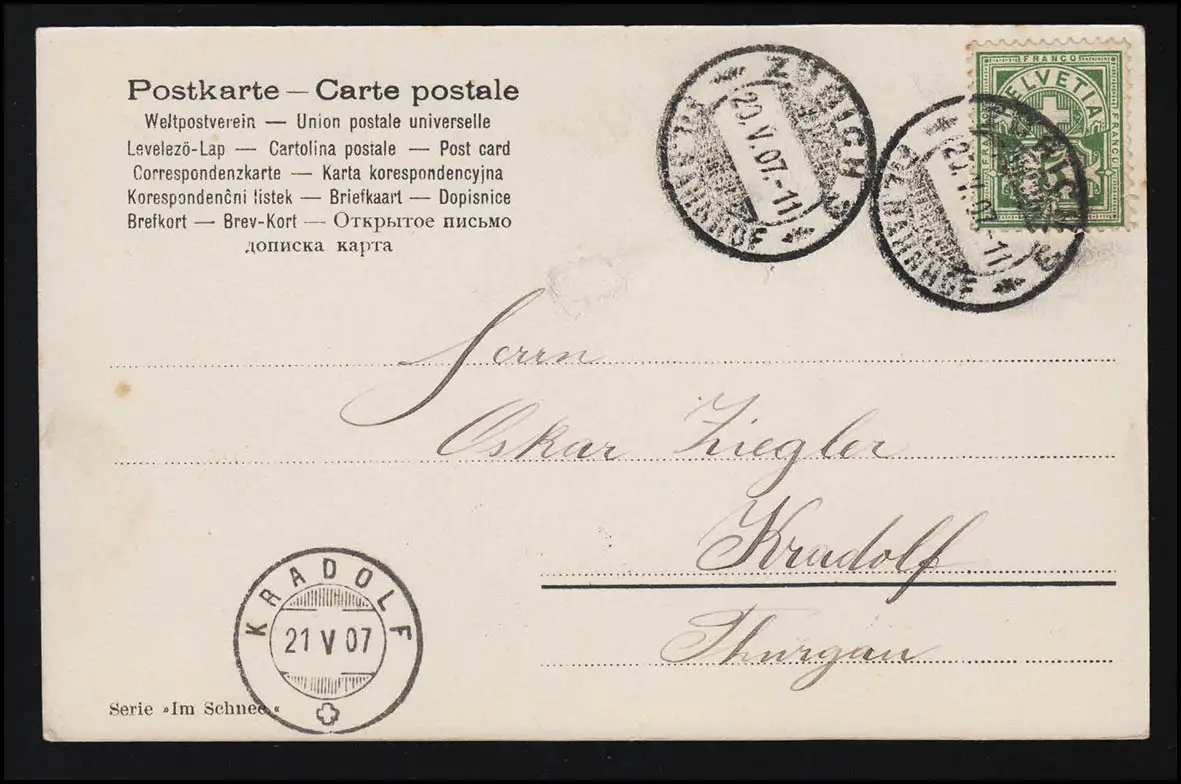 Postkarte — Carte postale
Weltpostverein — Union postale universelle
Levelező-Lap — Cartolina postale — Post card
Correspondenzkarte — Karta korespondencyjna
Korespondenčni listek — Briefkaart — Dopisnice
Brefkort — Brev-Kort — Открытое письмо
дописка карта
ZÜRICH 3
20.V.07.-11
BAHNHOF
FRANCO
HELVETIA
FRANCO
FRANCO
ZÜRICH 3
20.V.07.-11
BAHNHOF
Herrn
Oskar Ziegler
Kradolf
Thurgau
KRADOLF
21 V 07
Serie »Im Schnee.«